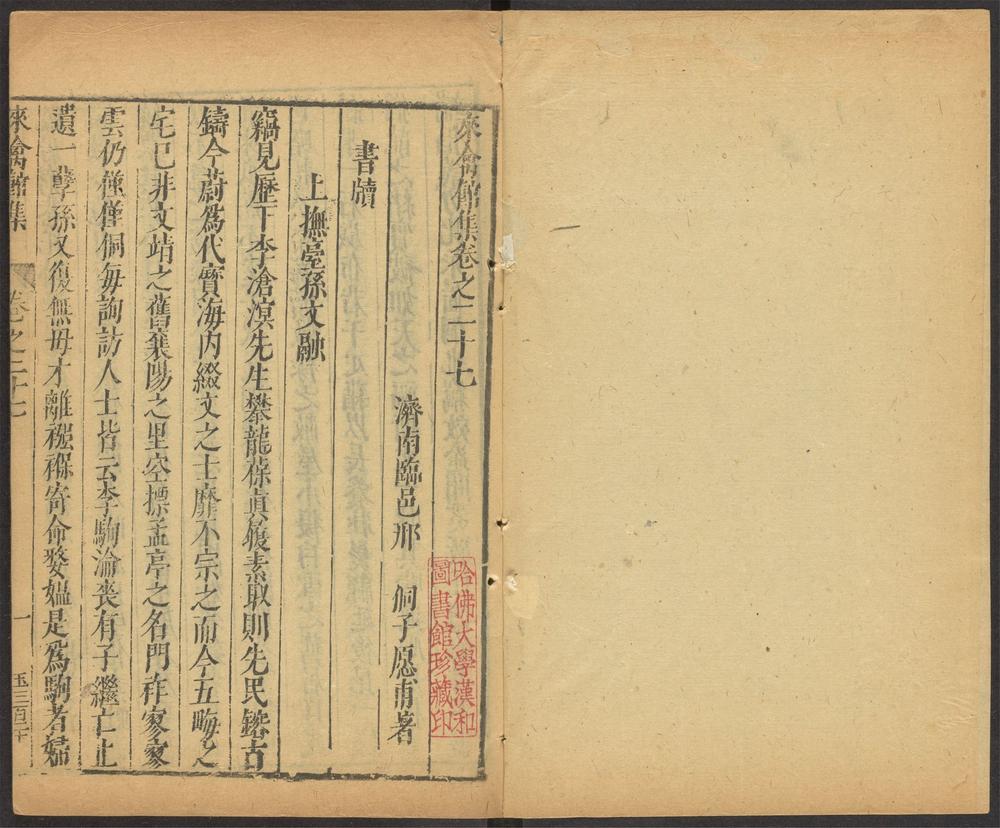 來禽館集卷之二十七
濟南臨邑邢 侗子愿甫著
哈佛大學漢和
圖書館珍藏印
書牘
上撫臺孫文融
竊見歷下李滄溟先生攀龍葆眞履素取則先民鎔古
鑄今蔚爲代寶海内綴文之士靡不宗之而今五畮之
宅已非文靖之舊襄陽之里空摽孟亭之名門祚寥寥
雲仍僅僅侗每詢訪人士皆云李駒淪喪有子繼亡止
遺一孽孫又復無毋才離襁褓寄命嫠媼是爲駒者婦
來禽館集
卷之二十七
一